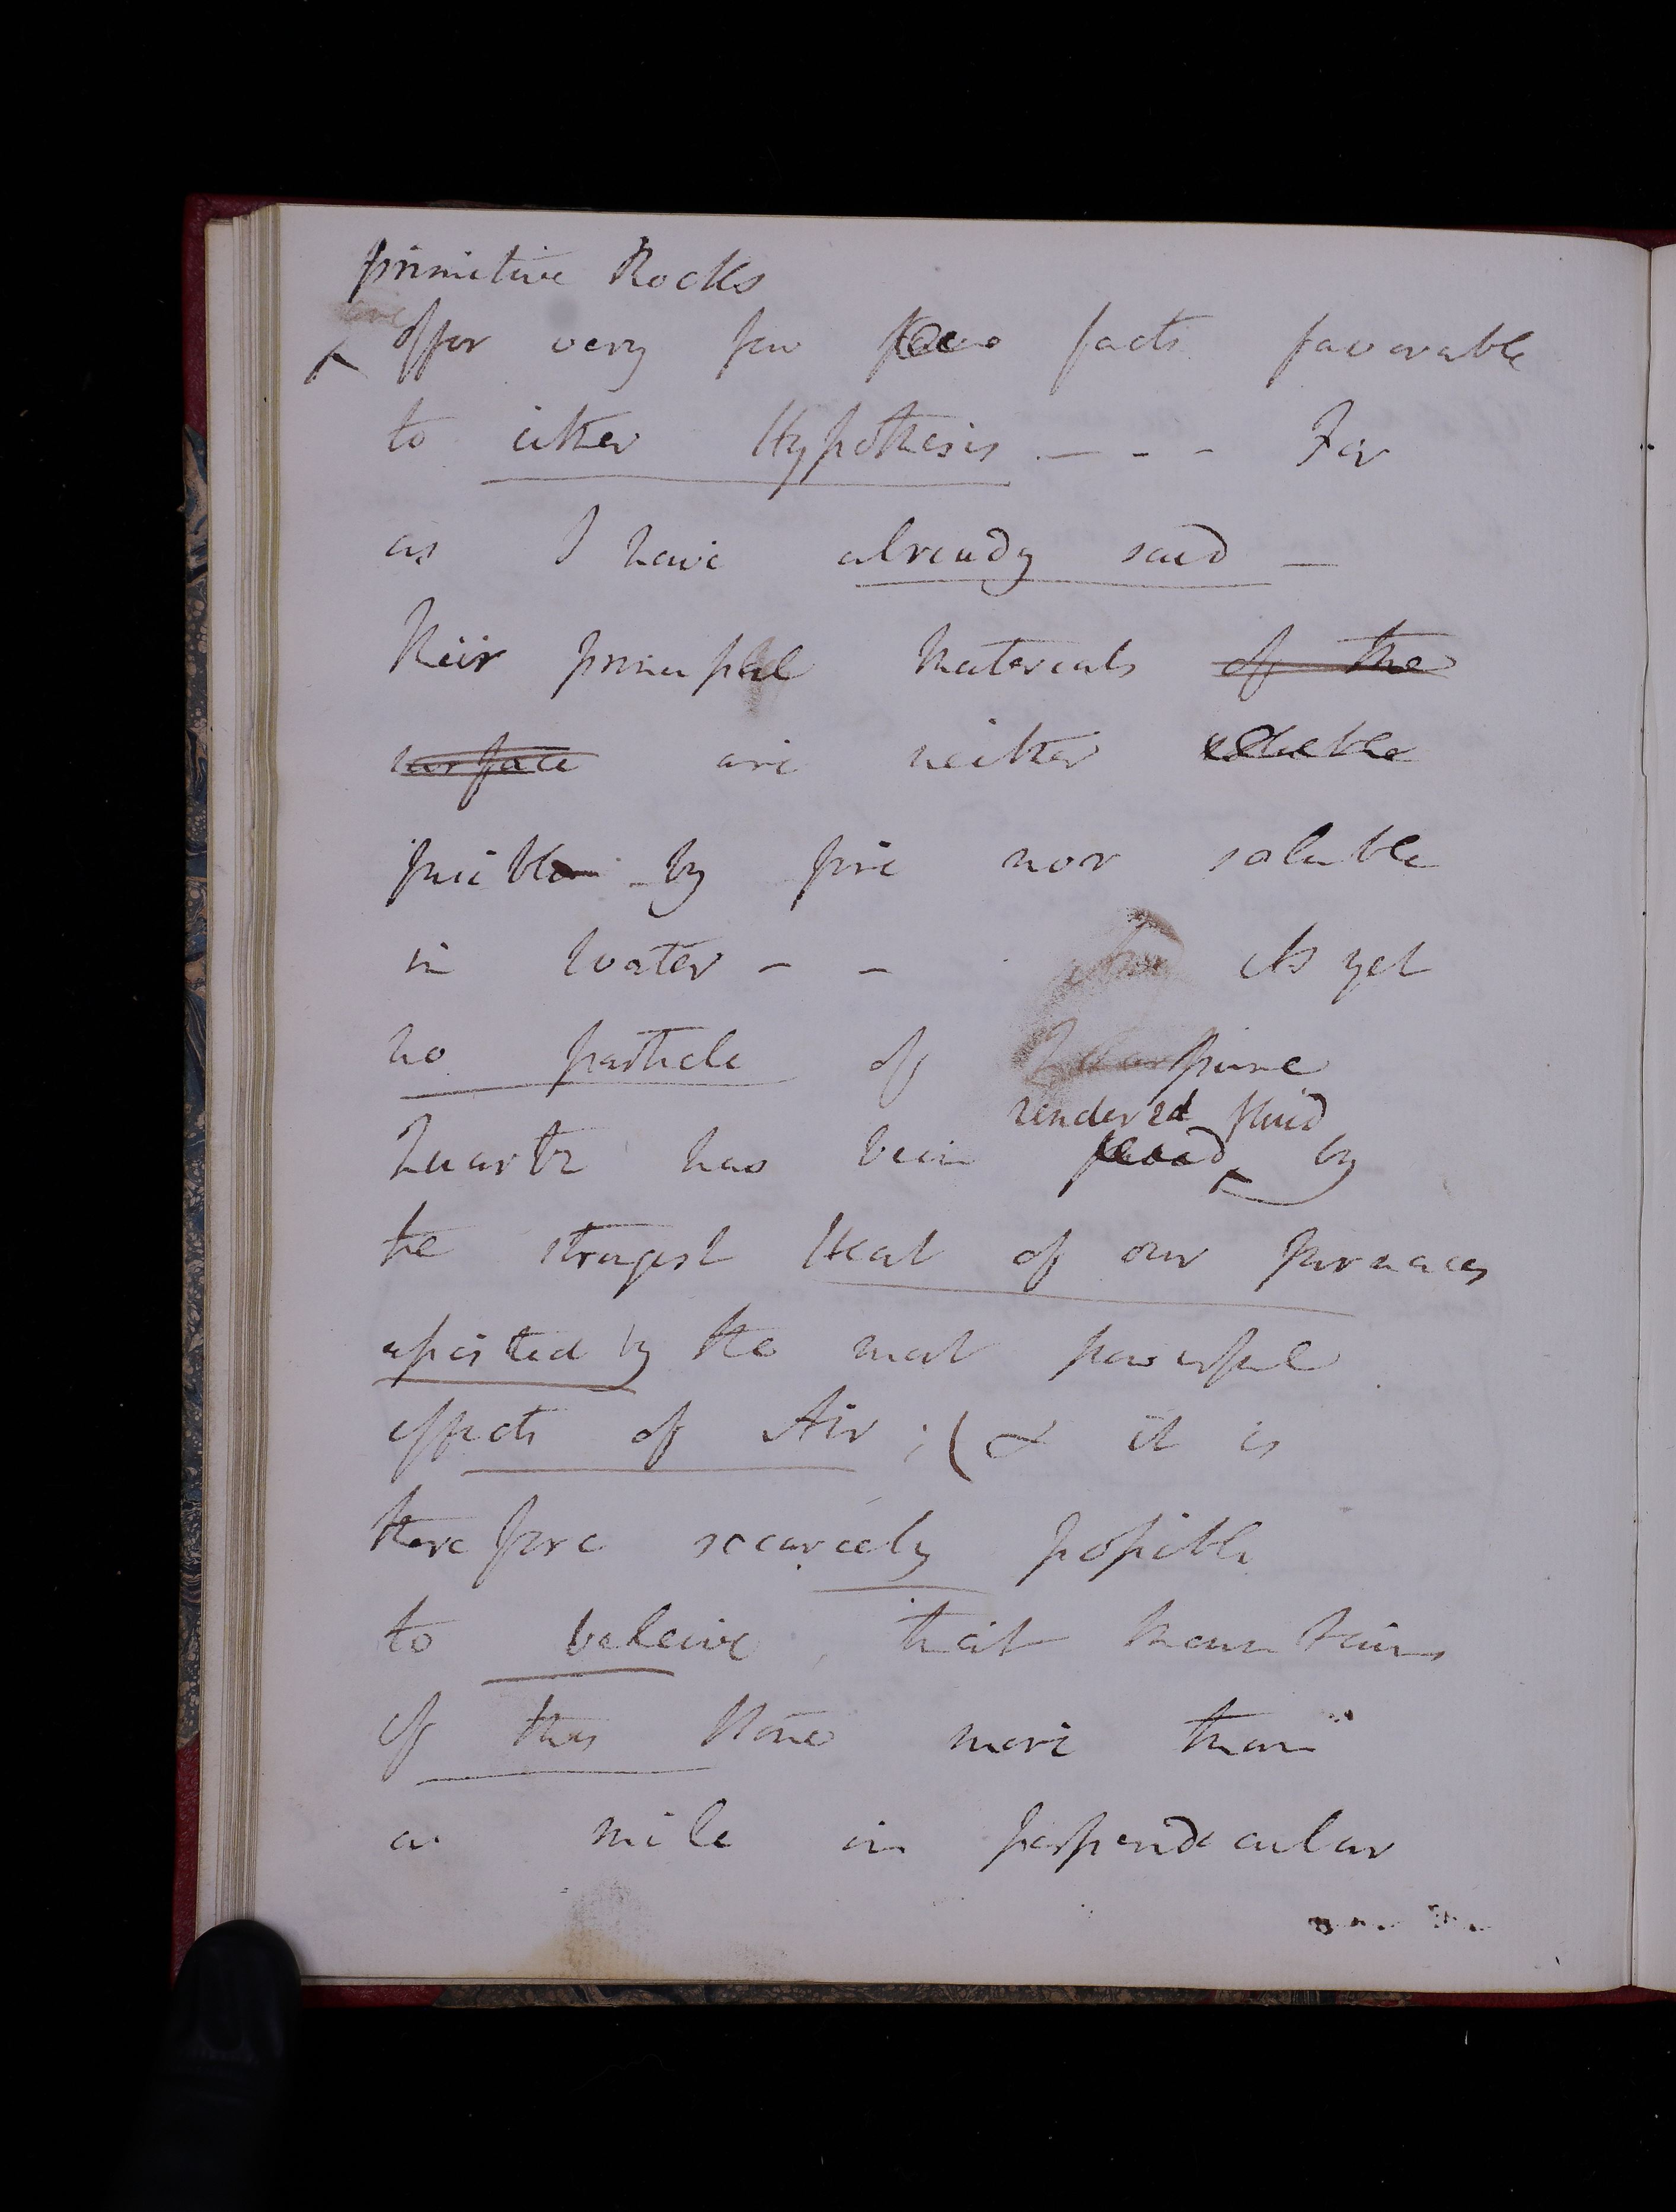 primitive Rocks
offer very few facts favorable
to either Hypothesis - - - For
as I have already said -
their principal materials of the
surface are neither soluble
fusible by fire nor soluble
in water - - As yet
no particle of pure
rendered fluid
Quartz has been fused by
the strongest Heat of our furnaces
assisted by the most powerful
effects of Air ; ( & it is
therefore scarcely possible
to beleive that mountains
of this stone more than
a mile in perpendicular